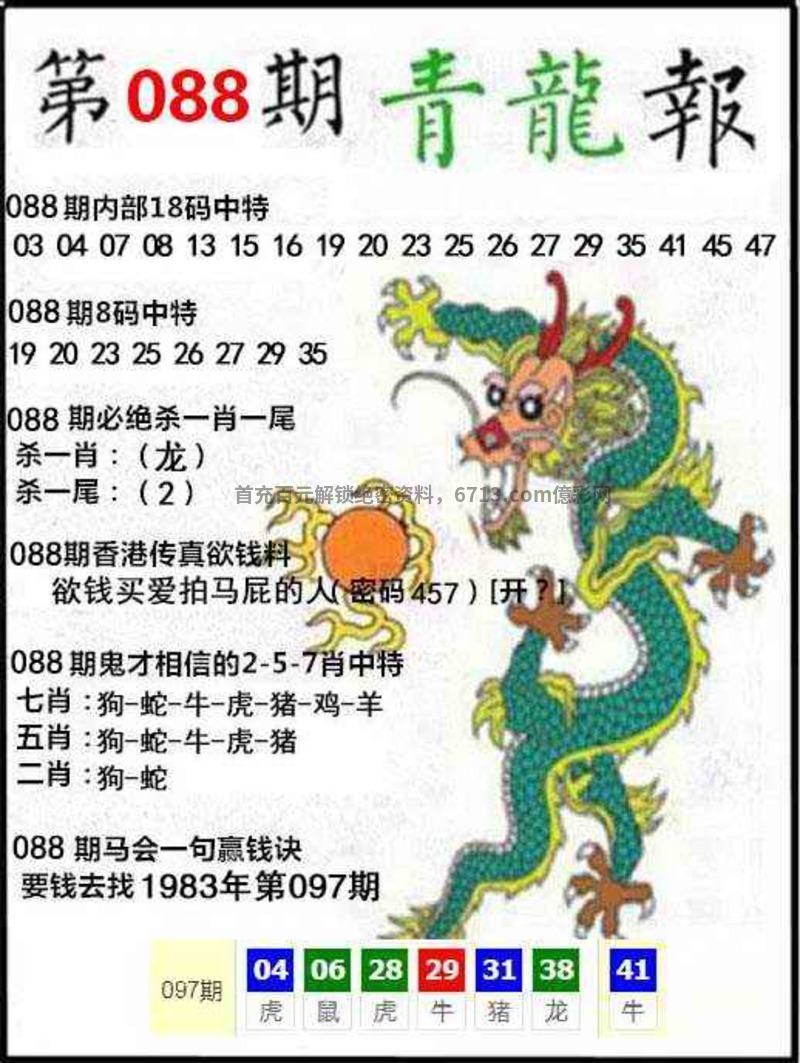 第088期青龍報
088期内部18码中特
03 04 07 08 13 15 16 19 20 23 25 26 27 29 35 41 45 47
088期8码中特
19 20 23 25 26 27 29 35
088 期必绝杀一肖一尾
杀一肖：（龙）
杀一尾：（2）
首充百元解锁绝密资料，6713.com億彩网
088期香港传真欲钱料
欲钱买爱拍马屁的人( 密码 457 ) [开？]
088 期鬼才相信的2-5-7肖中特
七肖：狗-蛇-牛-虎-猪-鸡-羊
五肖：狗-蛇-牛-虎-猪
二肖：狗-蛇
088 期马会一句赢钱诀
要钱去找1983年第097期
097期 04 06 28 29 31 38 41
虎 鼠 虎 牛 猪 龙 牛